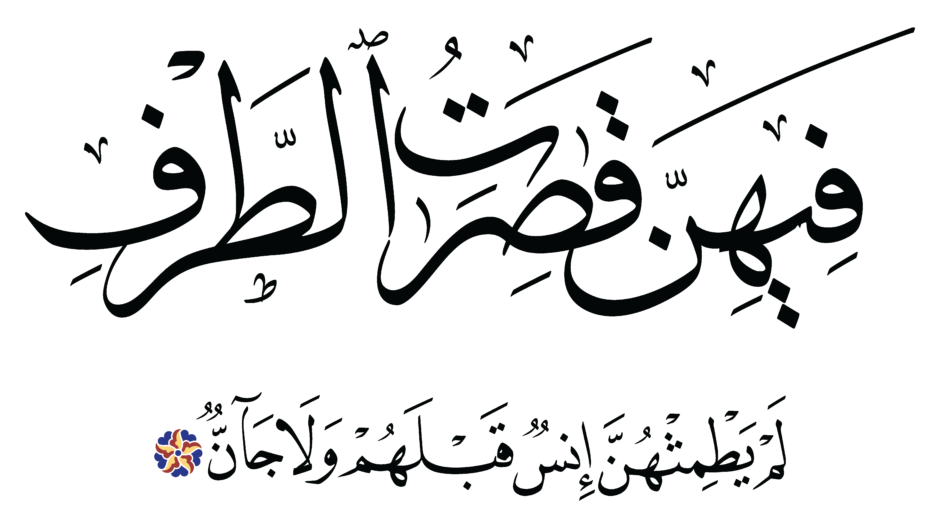 فِيهِنَّ قَٰصِرَٰتُ ٱلطَّرْفِ
لَمْ يَطْمِثْهُنَّ إِنسٌ قَبْلَهُمْ وَلَا جَآنٌّ